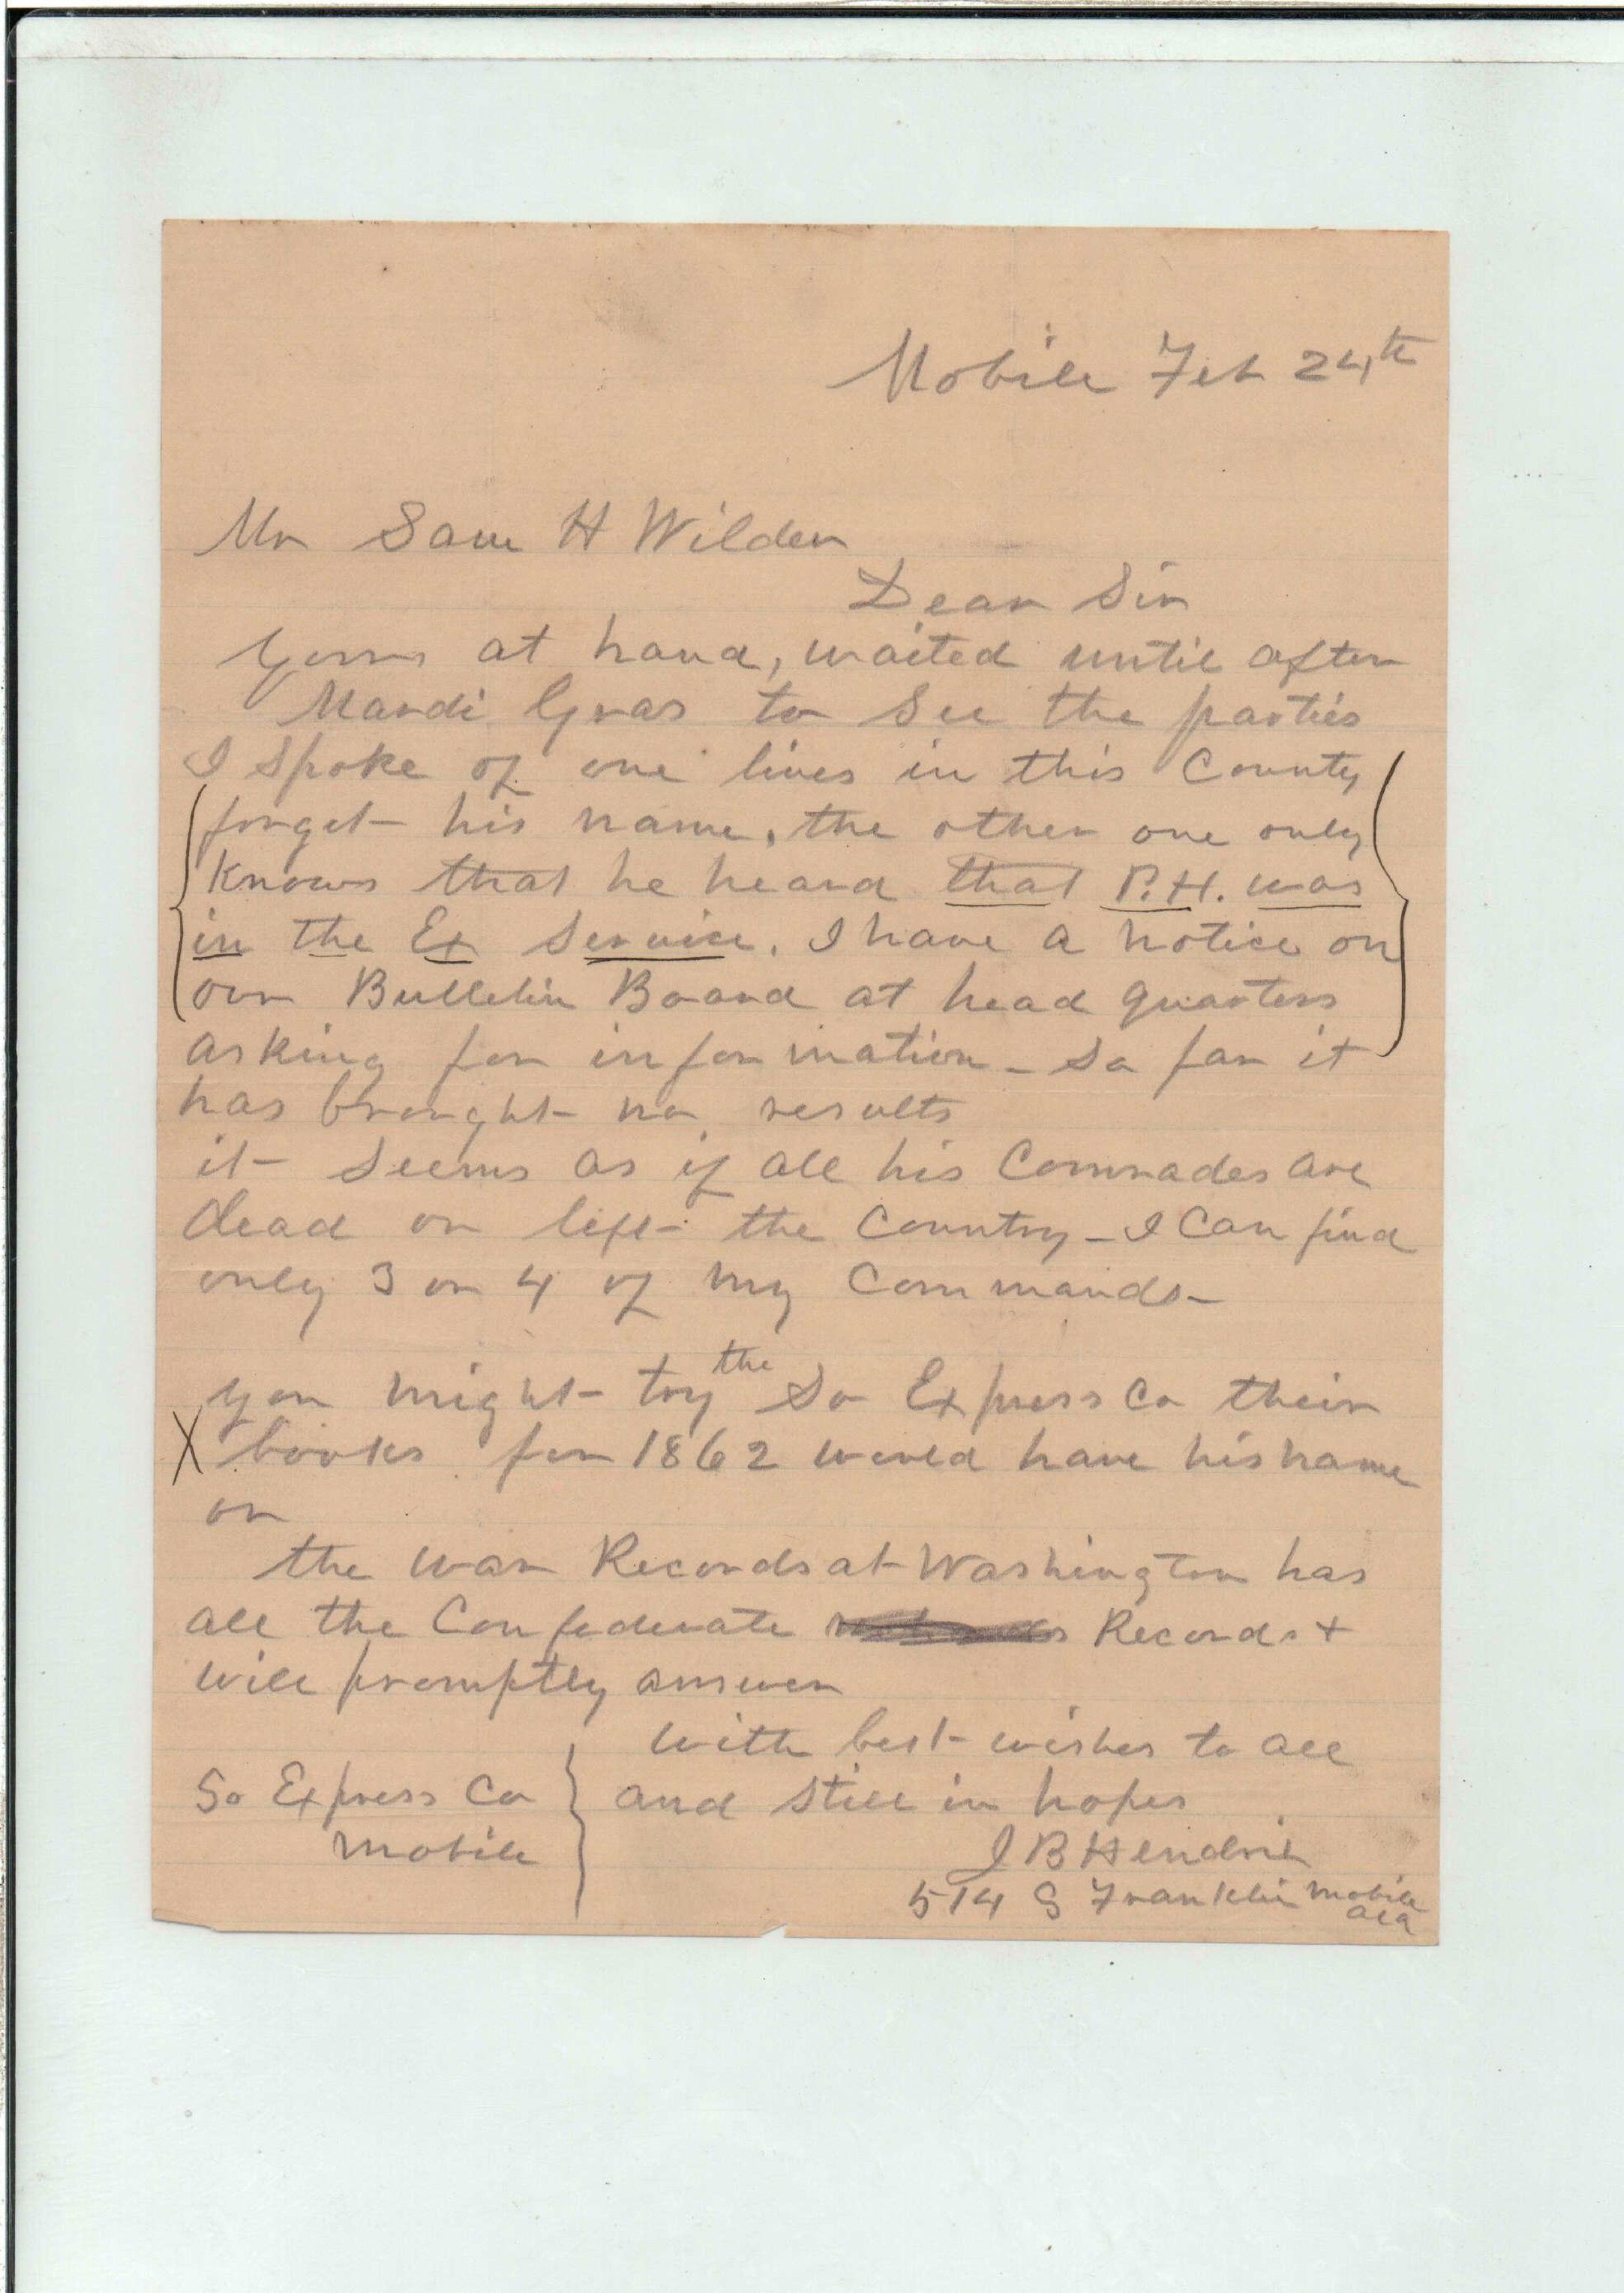 Mobile Feb 24th
Mr Sam H Wilder
Dear Sir
Yours at hand, waited until after
Mardi Gras to see the parties
I spoke of one lives in this County
forget his name, the other one only
knows that he heard that P.H. was
in the Ex Service. I have a notice on
our Bulletin Board at head quarters
asking for information - So far it
has brought no results
it seems as if all his Comrades are
dead or left the Country - I Can find
only 3 or 4 of my Commands -
you might try the So Express Co their
X books for 1862 would have his name
on
the War Records at Washington has
all the Confederate Records +
will promptly answer
with best wishes to all
and still in hopes
So Express Co
Mobile
J B Hendrix
514 S Franklin Mobile
Ala